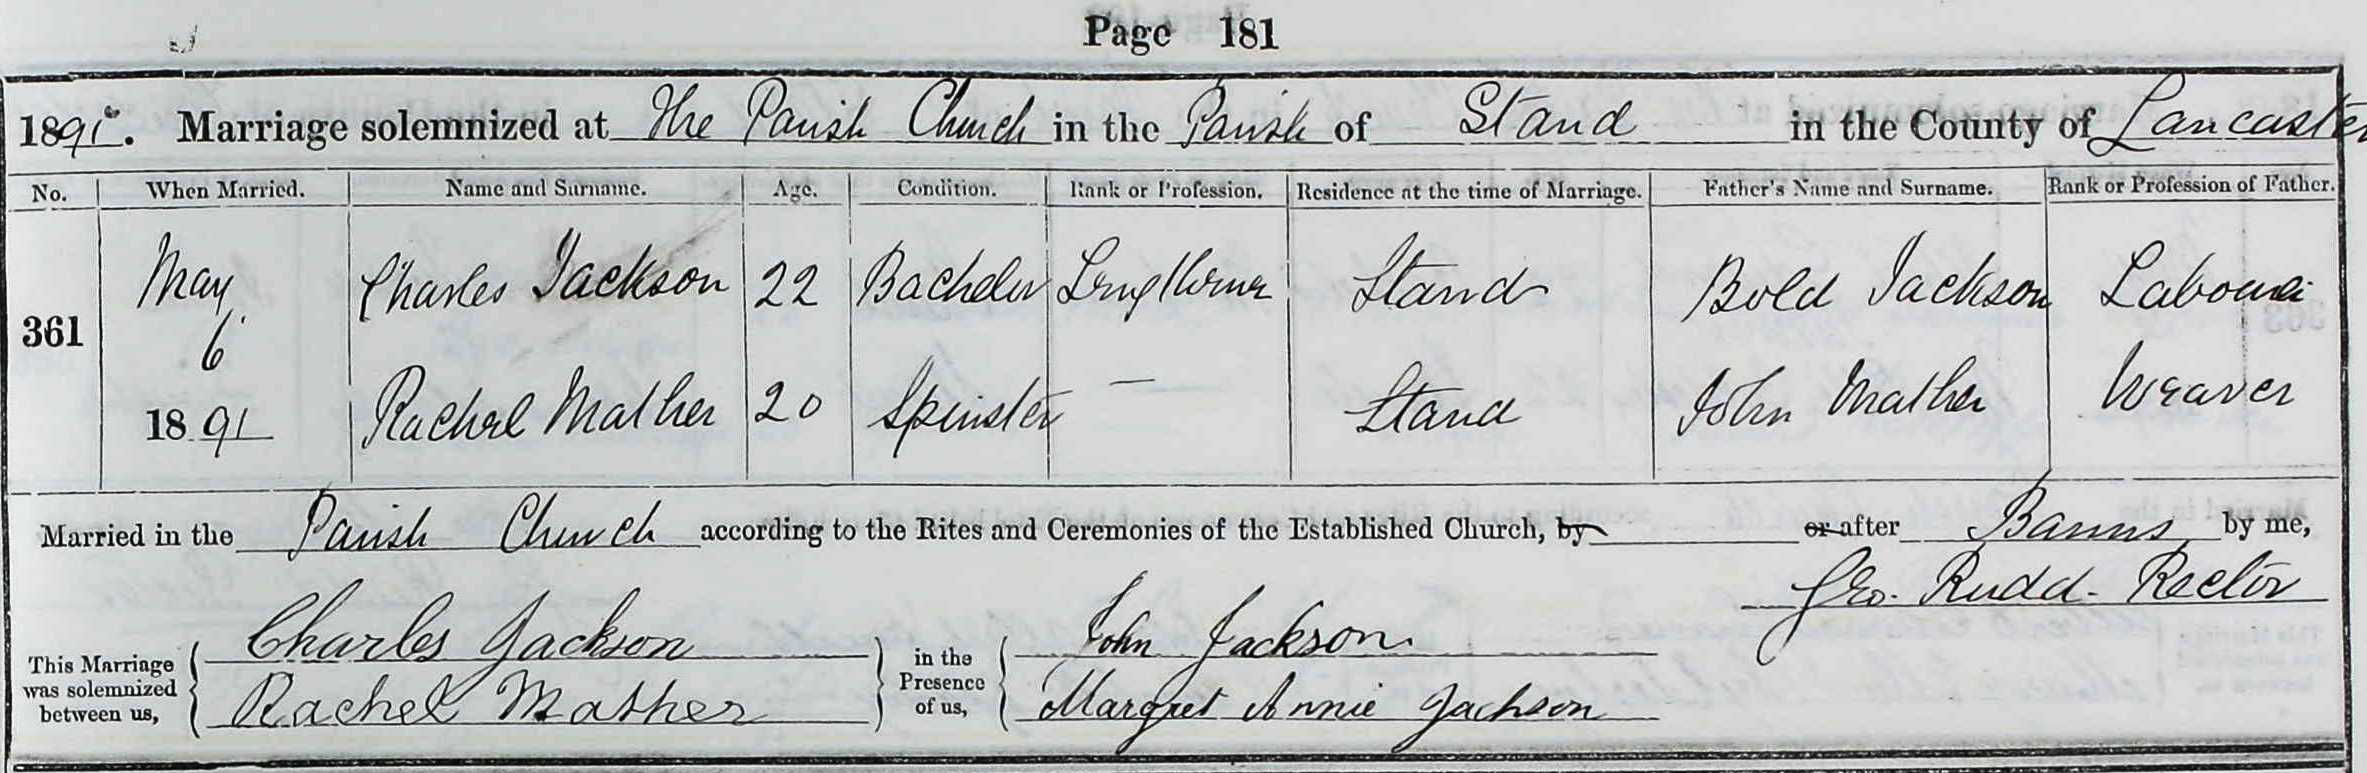 Page 181
1891. Marriage solemnized at The Parish Church in the Parish of Stand in the County of Lancaster
No. When Married. Name and Surname. Age. Condition. Rank or Profession. Residence at the time of Marriage. Father's Name and Surname. Rank or Profession of Father.
361 May 6 1891
Charles Jackson 22 Bachelor Stand Bold Jackson Labourer
Rachel Mather 20 Spinster — Stand John Mather Weaver
Married in the Parish Church according to the Rites and Ceremonies of the Established Church, by or after Banns by me,
Geo. Rudd. Rector
This Marriage was solemnized between us, Charles Jackson Rachel Mather
in the Presence of us, John Jackson. Margret Annie Jackson